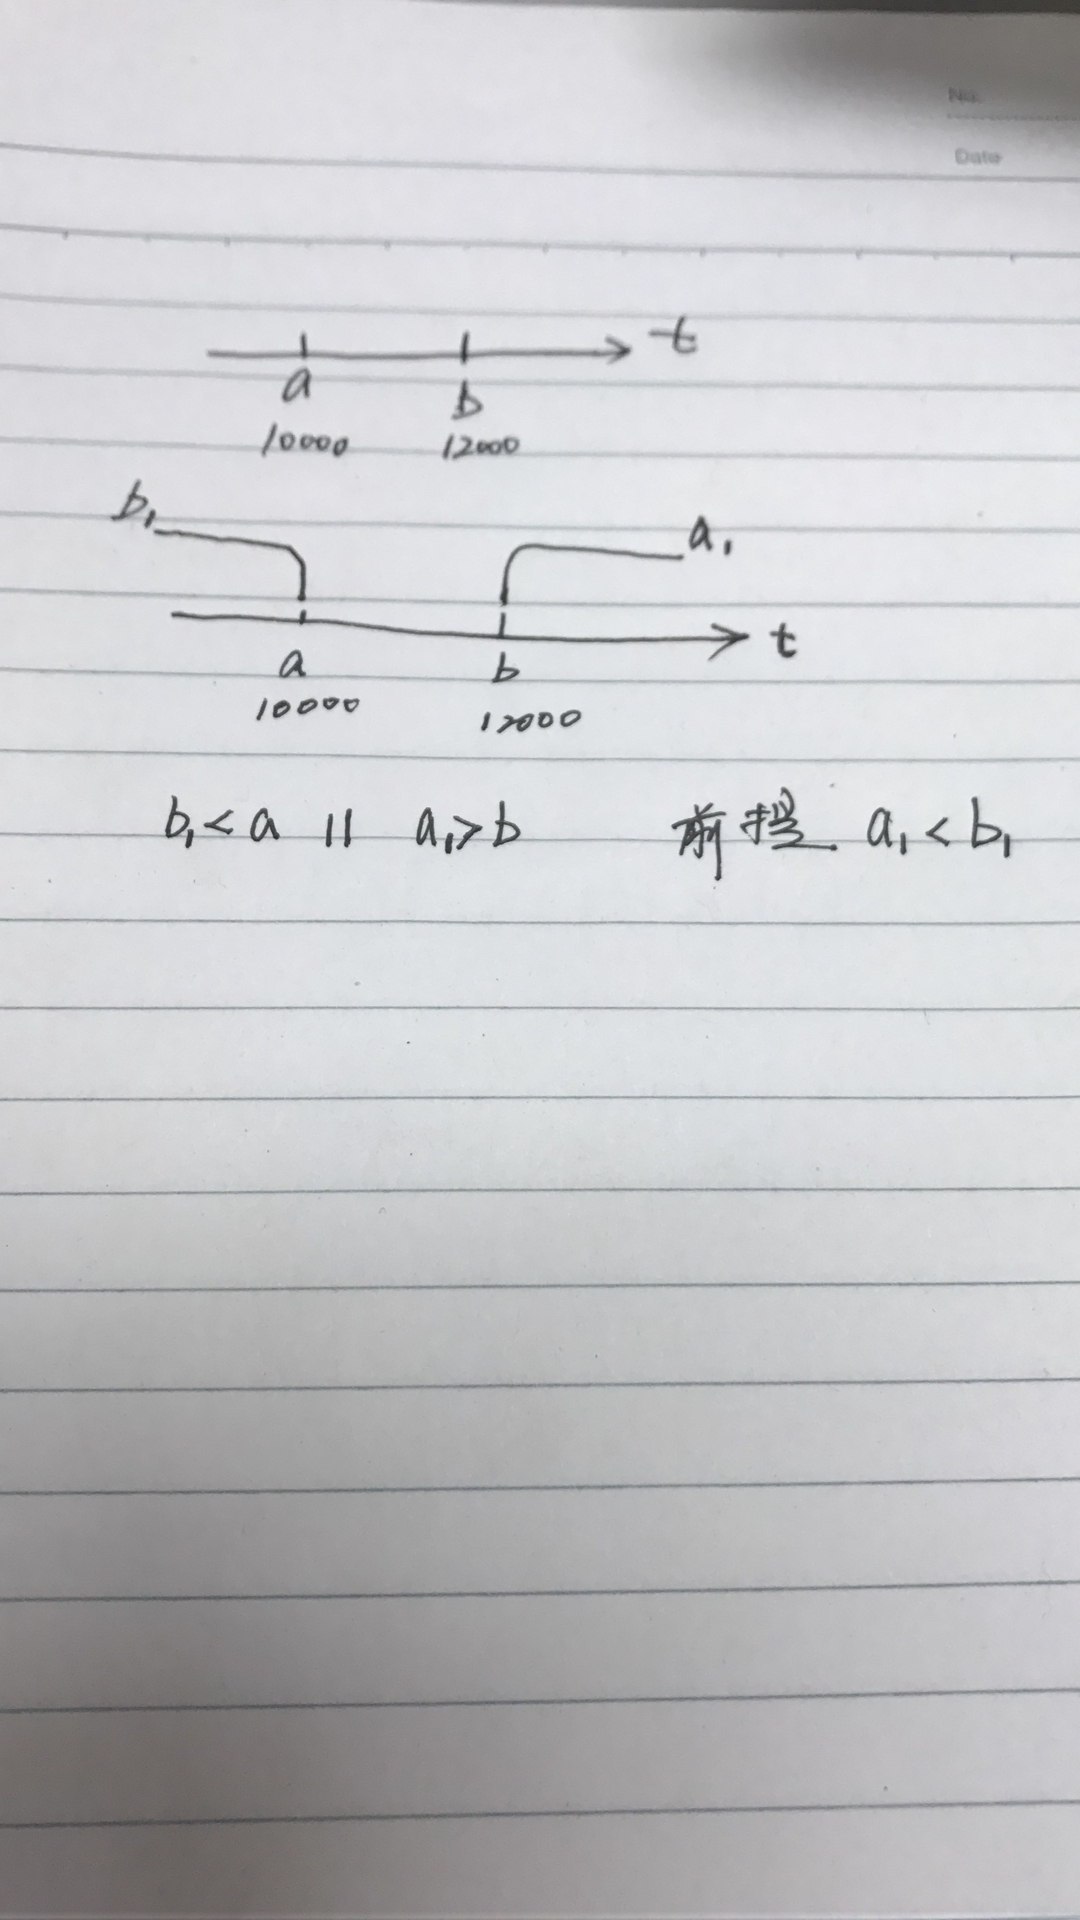 No.
Date
t
a b
10000 12000
b₁ a₁
t
a b
10000 12000
b₁<a || a₁>b 前提 a₁<b₁